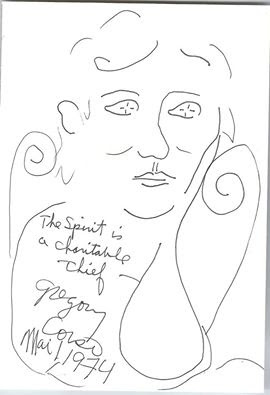 The Spirit is
a charitable
thief
Gregory
Corso
Mai, 1974